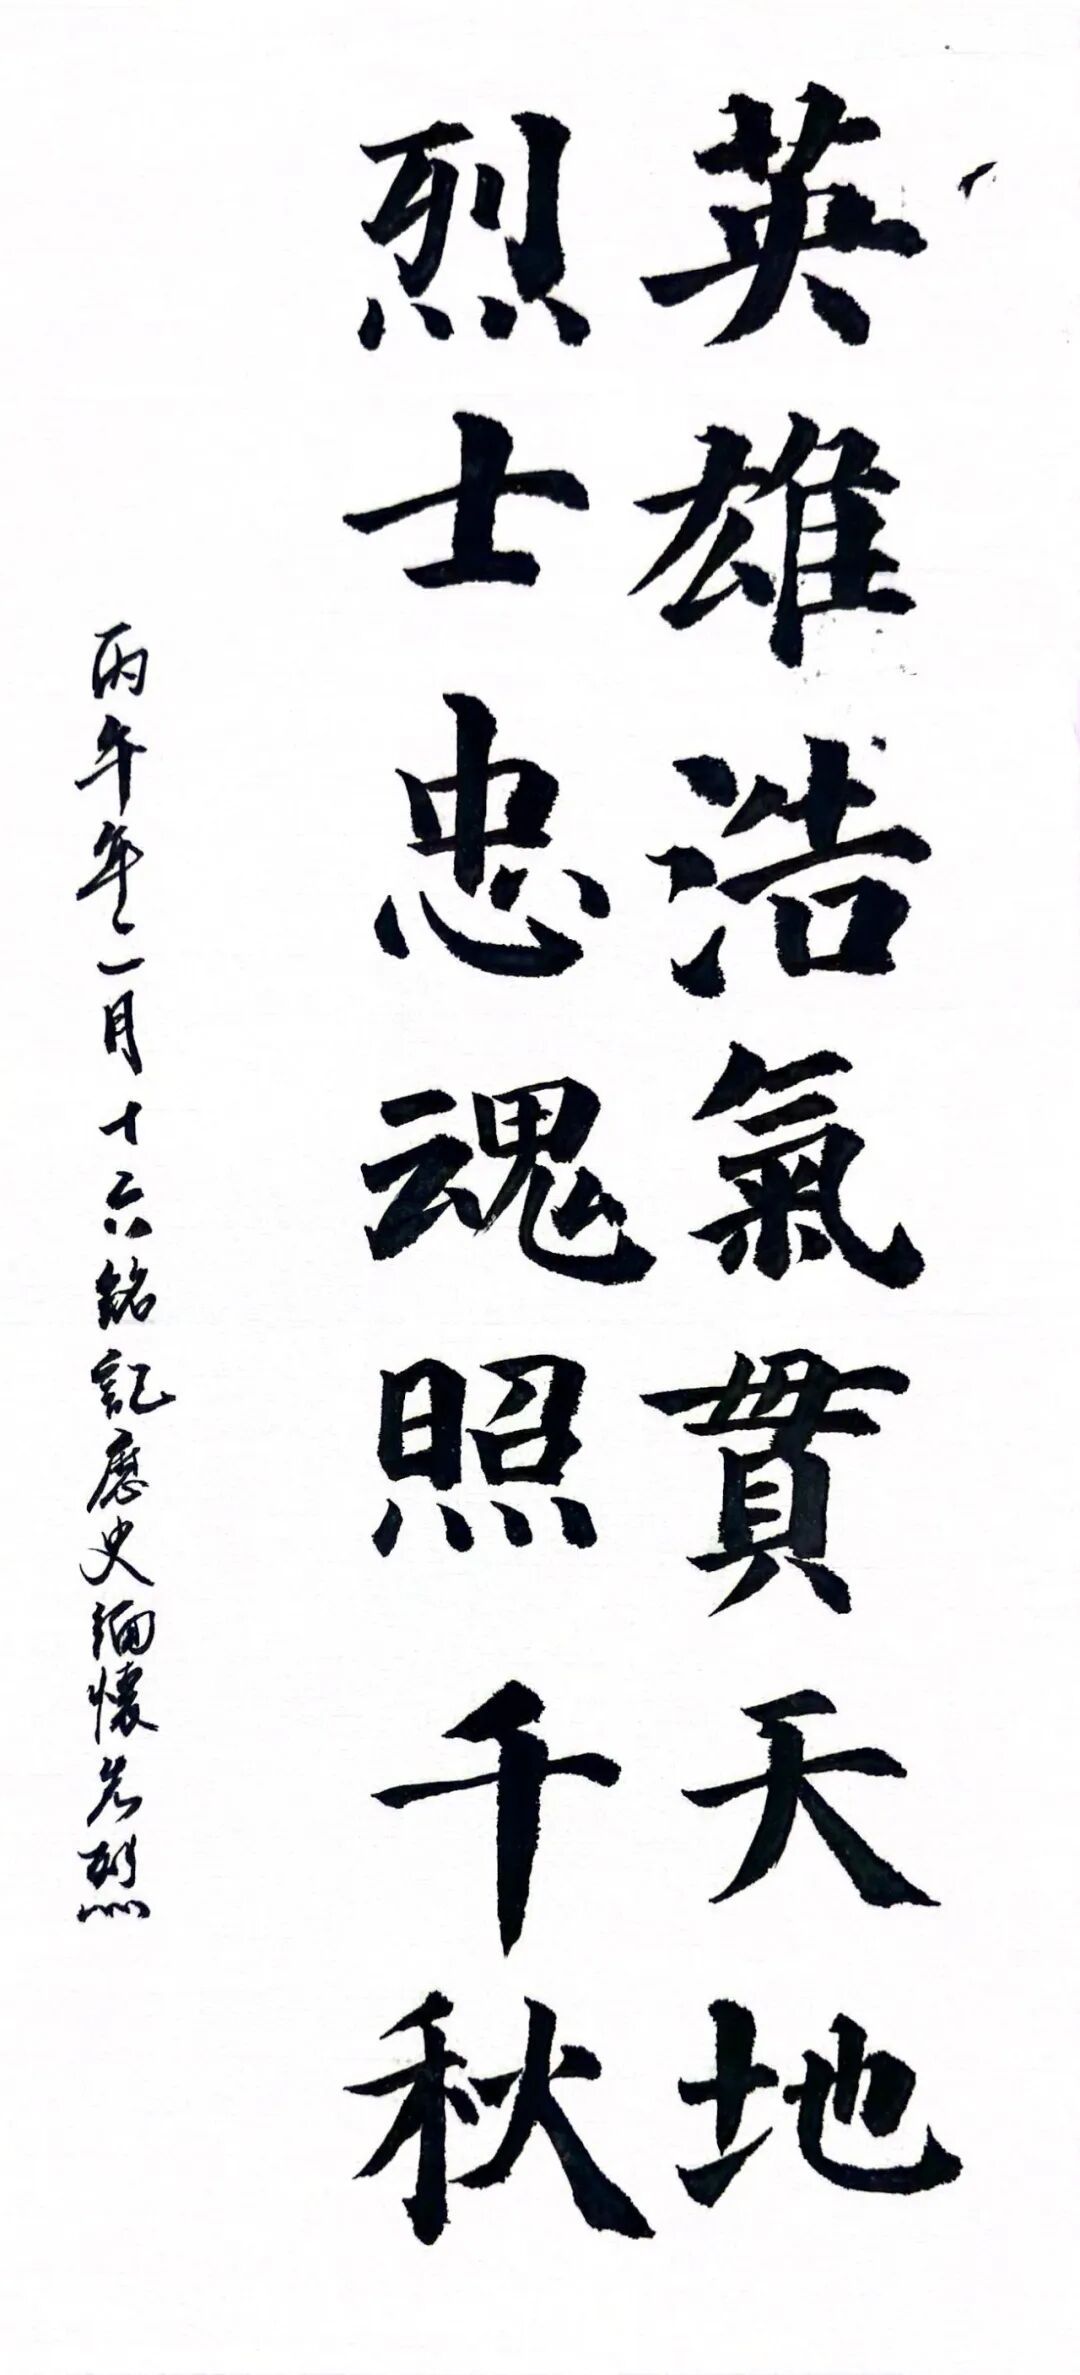 英雄浩氣貫天地
烈士忠魂照千秋
丙午年二月十六銘記歷史緬懷先烈